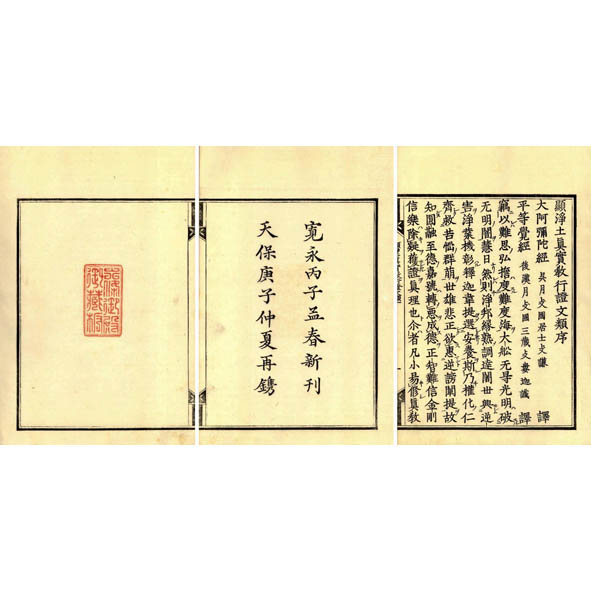 顯淨土眞實教行證文類序
大阿彌陀經 吳月支國居士支謙 譯
平等覺經 後漢月支國三藏支婁迦讖 譯
竊以難思弘誓度難度海大舩无㝵光明破
无明闇慧日然則淨邦緣熟調達闍世興逆
害淨業機彰釋迦韋提選安養斯乃權化仁
齊救苦惱群萠世雄悲正欲惠逆謗闡提故
知圓融至德嘉號轉惡成德正智難信金剛
信樂除疑獲證眞理也尒者凡小易修眞教
寬永丙子孟春新刊
天保庚子仲夏再鐫